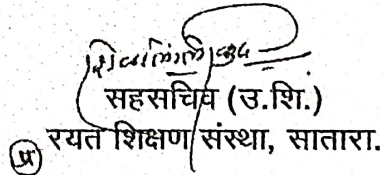 सहसचिव (उ.शि.)
प्र रयत शिक्षण संस्था, सातारा.